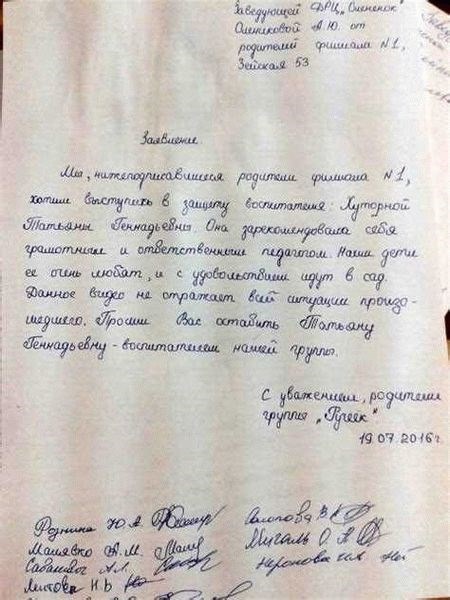 Заведующей ФРЦ „Олененок"
Олениковой А.Ю. от
родителей филиала N1,
Зейская 53
Заявление.
Мы, нижеподписавшиеся родители филиала N1,
хотим выступить в защиту воспитателя: Хуторной
Татьяны Геннадьевны. Она зарекомендовала себя
грамотным и ответственным педагогом. Наши дети
ее очень любят, и с удовольствием идут в сад.
Данное видео не отражает всей ситуации произо-
шедшего. Просим Вас оставить Татьяну
Геннадьевну - воспитателем нашей группы.
С уважением, родители
группы „Ручеек"
19.07.2016г.
Роднина Ю.А.
Малявко А.М.
А.Л.
Н.В
В.К
Мигаль О.А